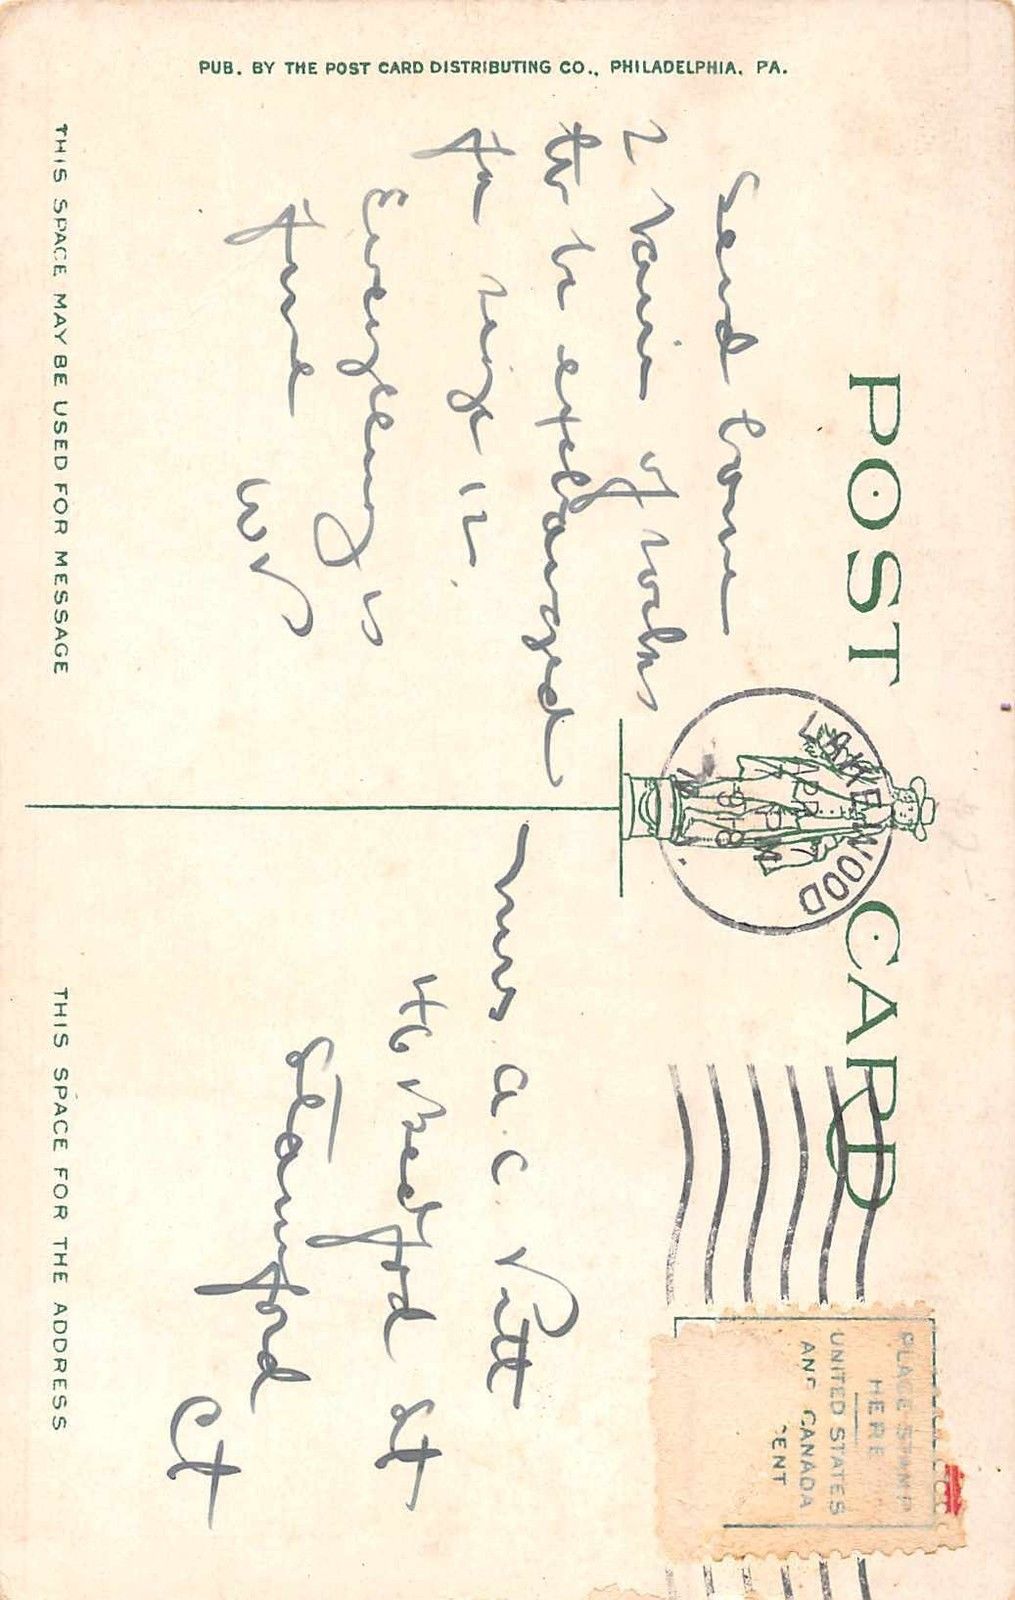 PUB. BY THE POST CARD DISTRIBUTING CO., PHILADELPHIA. PA.
POST CARD
LAKEWOOD
APR
PM
1918
PLACE STAMP
HERE
UNITED STATES
AND CANADA
CENT
Send home
2 pairs of socks
to be exchanged
for size 12.
Everything is
fine
Mrs A. C. Pitt
46 Bedford St
Stamford
Ct
THIS SPACE MAY BE USED FOR MESSAGE
THIS SPACE FOR THE ADDRESS